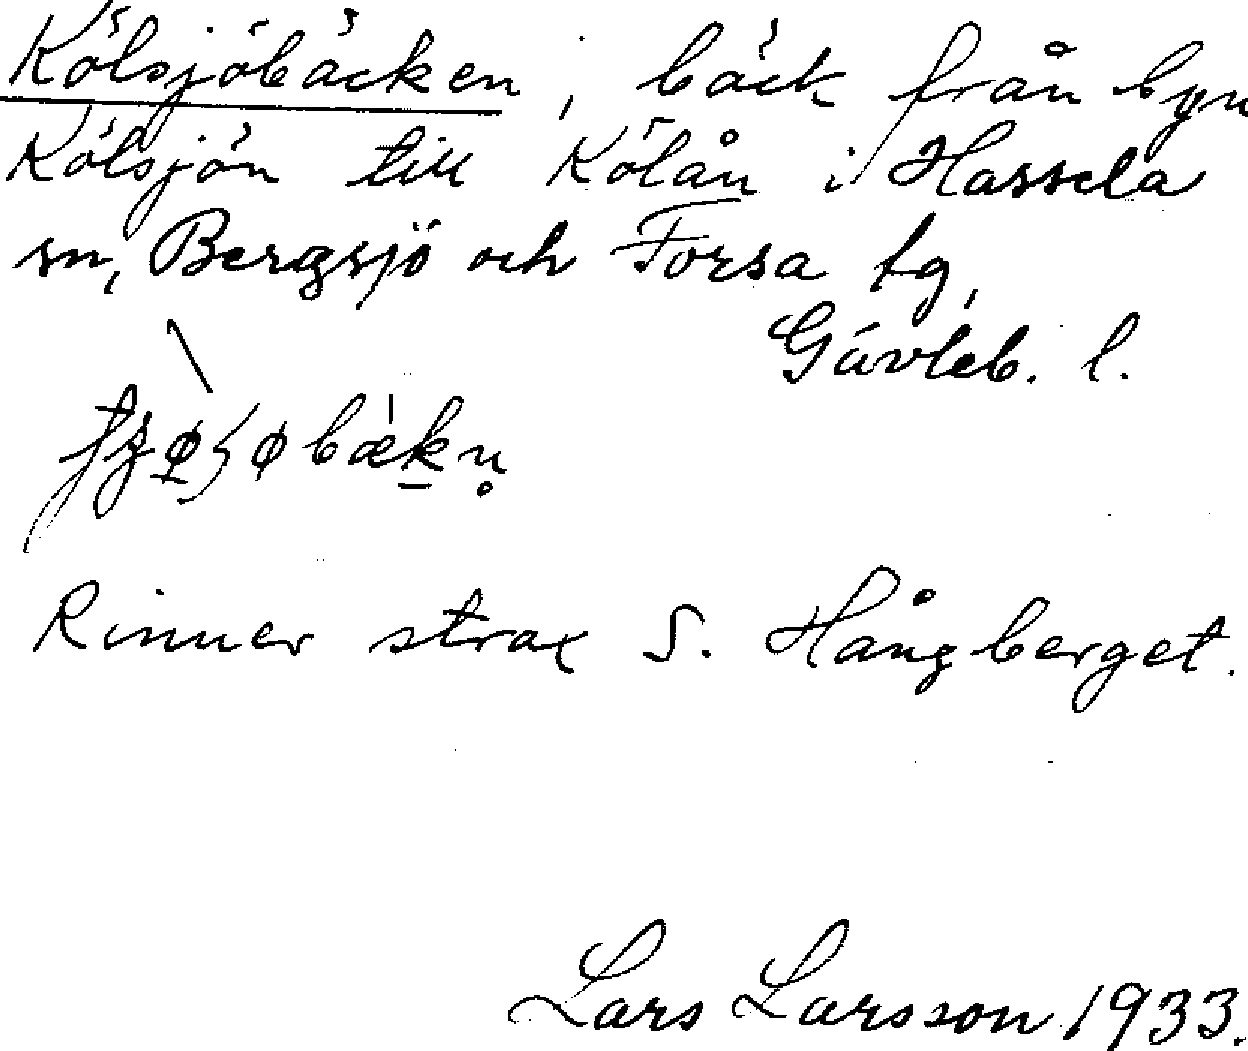 Kölsjöbäcken, bäck från byn
Kölsjön till Kölån i Hassela
sn, Bergsjö och Forsa tg,
Gävleb. l.
Rinner strax S. Hångberget.
Lars Larsson 1933.